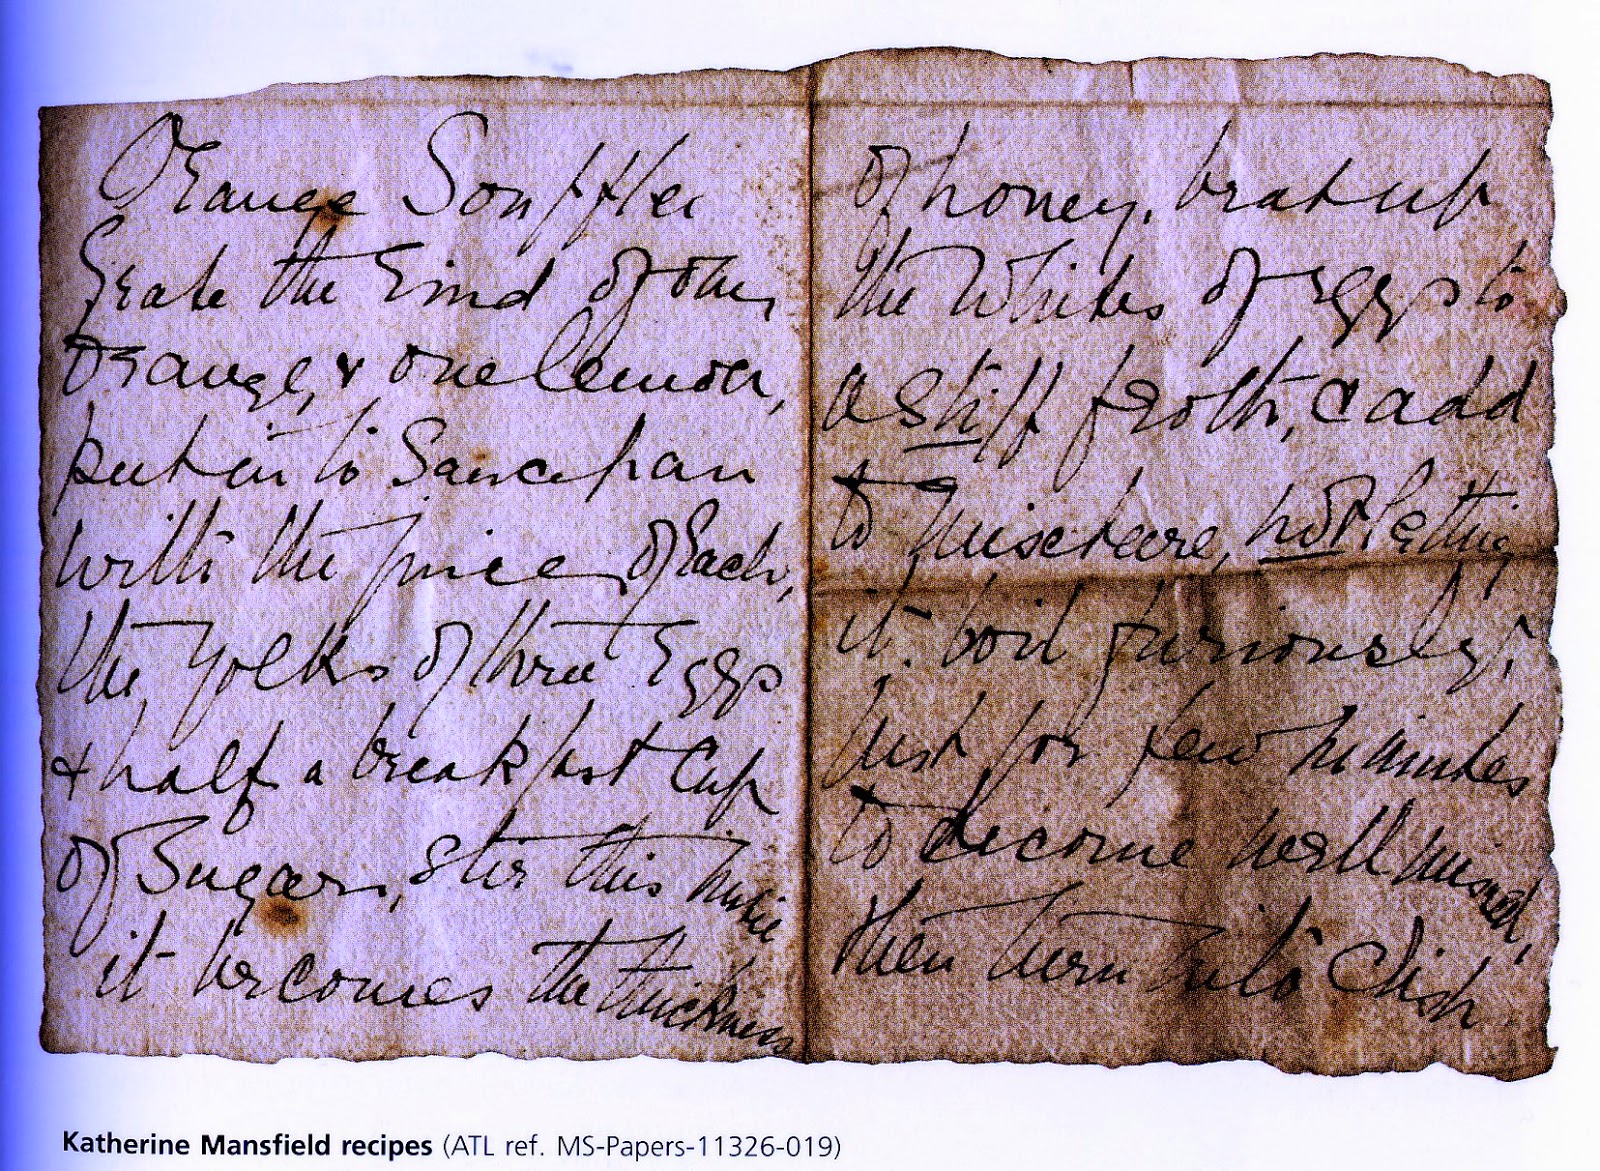 Orange Souffler
Grate the rind of one
orange, & one lemon,
put in to Saucepan
with the juice of Each,
the yolks of three Eggs
& half a breakfast Cup
of Sugar, stir this
it becomes the thickness
of honey. beat up
the Whites of eggs to
a stiff froth, & add
to mixture, not letting
it boil furiously,
Just for few minutes
to become well mixed,
then turn into dish
Katherine Mansfield recipes (ATL ref. MS-Papers-11326-019)